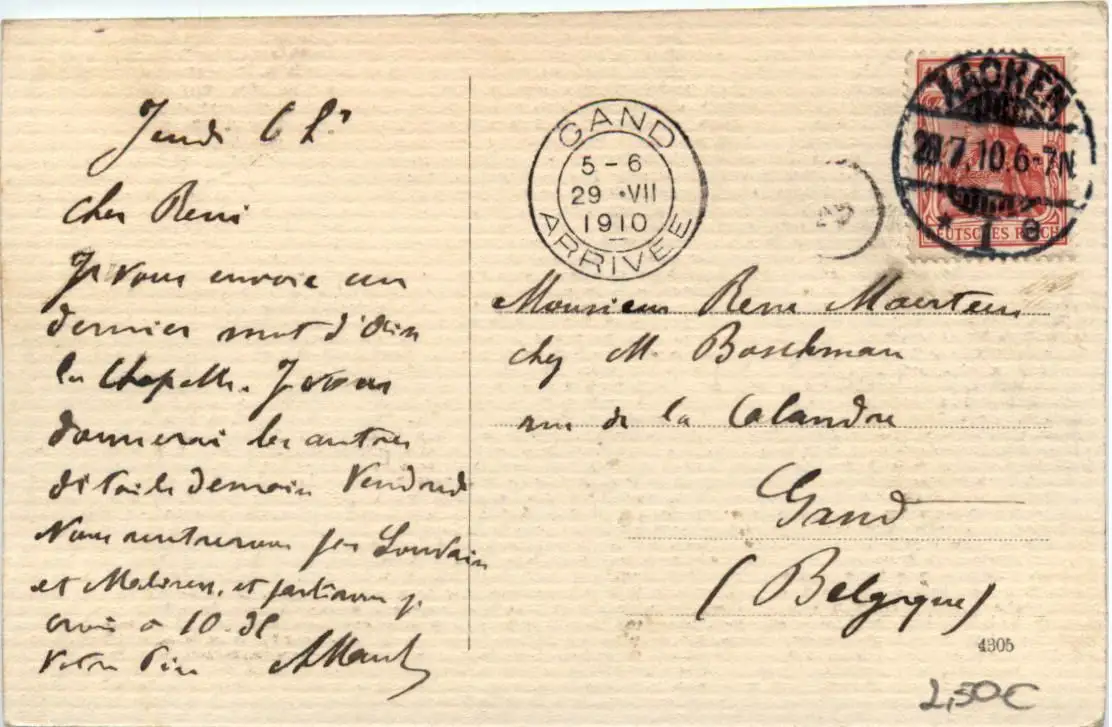 Jeudi 6 h
Cher René
Je vous envoie un
dernier mot d'Aix
la Chapelle. Je vous
donnerai les autres
détails demain Vendredi
Nous rentrerons par Louvain
et Malines, et partirons je
crois à 10.
Votre Père
GAND
5 - 6
29 · VII
1910
ARRIVÉE
AACHEN
28.7.10.6-7N.
* 1 e
DEUTSCHES REICH
Monsieur René Maertens
chez M. Boschman
rue de la Calandre
Gand
(Belgique)
4305
2,50€